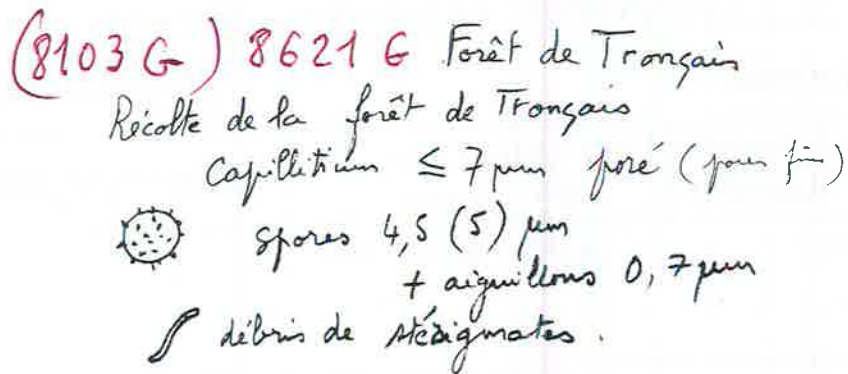 (8103 G) 8621 G Forêt de Tronçais
Récolte de la forêt de Tronçais
Capillitium ≤ 7 µm poré (pores fins)
spores 4,5 (5) µm
+ aiguillons 0,7 µm
débris de stérigmates.